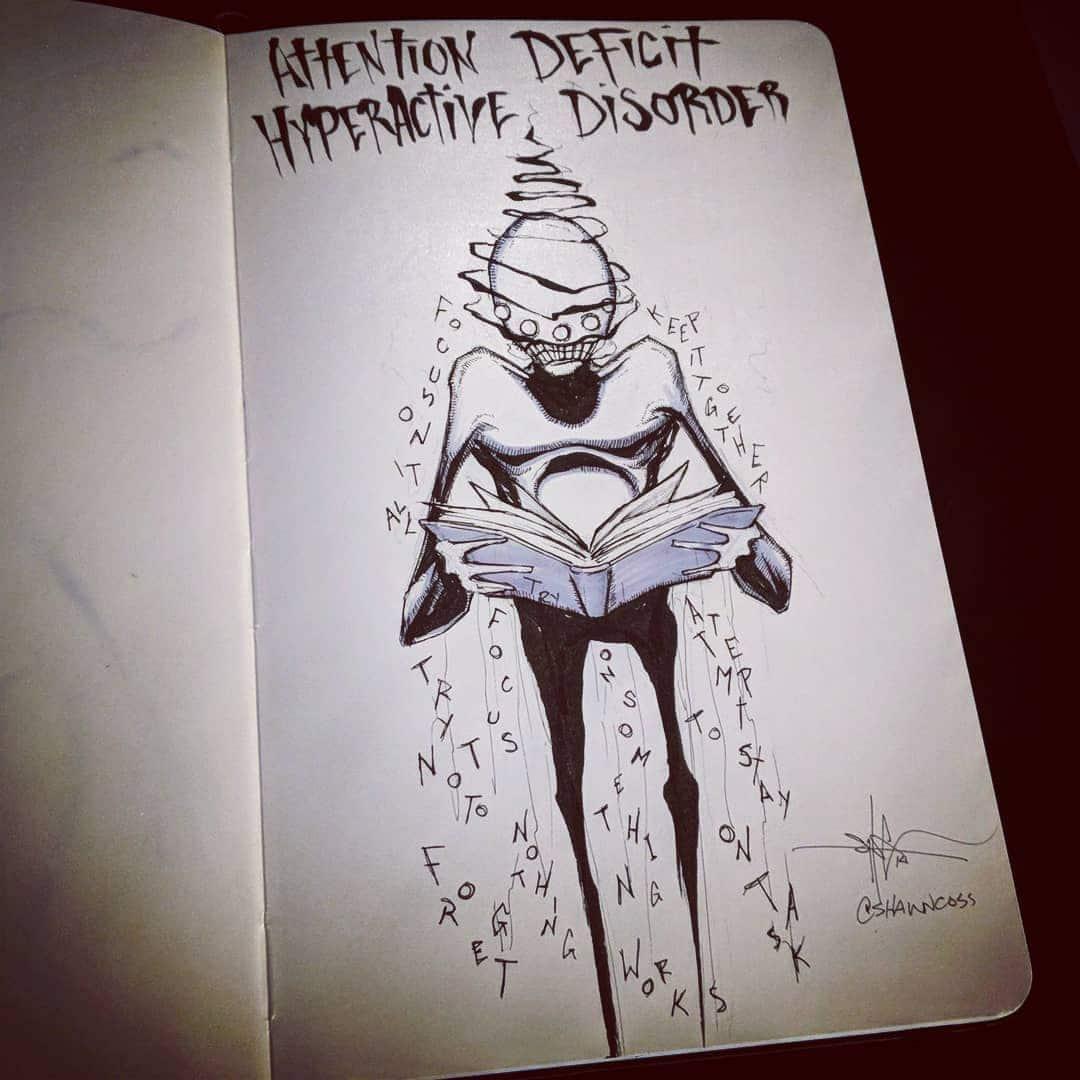 ATTENTION DEFICIT
HYPERACTIVE DISORDER
FOCUS ON IT ALL
KEEP IT TOGETHER
TRY NOT TO FORGET
TRY
FOCUS
ON SOMETHING
NOTHING
WORKS
ATTEMPT TO STAY ON TASK
@SHAWNCOSS